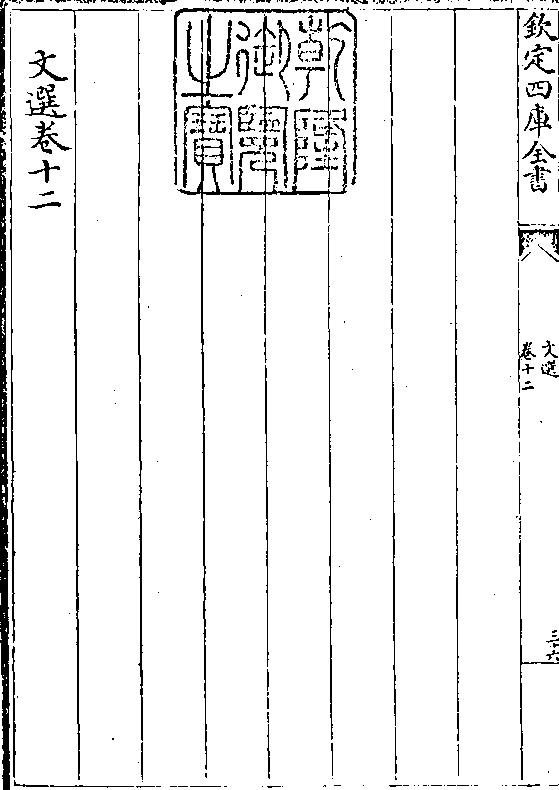 欽定四庫全書
文選
卷十二
三六
乾隆
御覽
之寶
文選卷十二